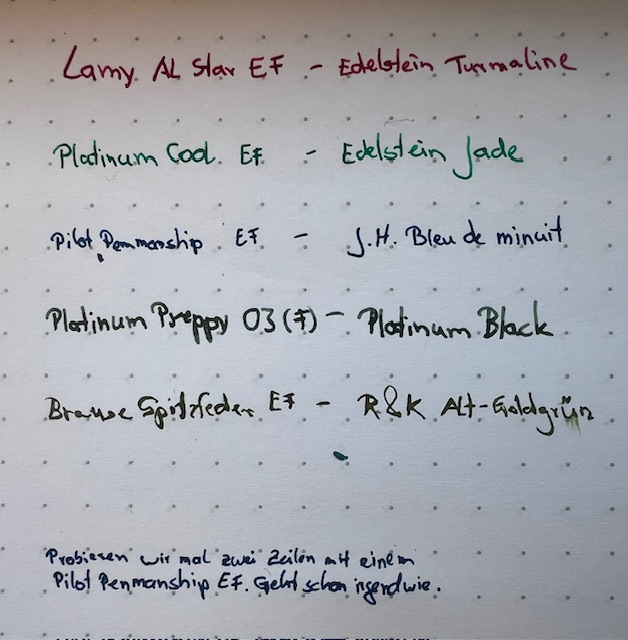 Lamy AL Star EF - Edelstein Turmaline
Platinum Cool EF - Edelstein Jade
Pilot Penmanship EF - J.H. Bleu de minuit
Platinum Preppy 03 (F) - Platinum Black
Brause Spitzfeder EF - R&K Alt-Goldgrün
Probieren wir mal zwei Zeilen mit einem
Pilot Penmanship EF. Geht schon irgendwie.